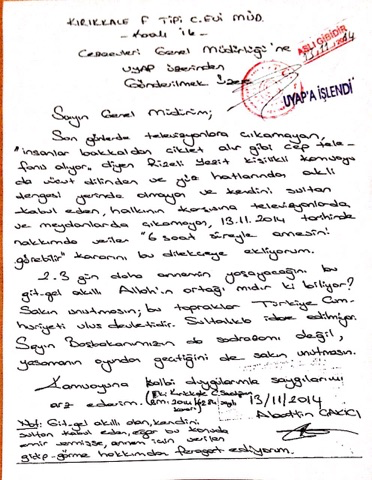 KIRIKKALE F TİPİ C.EVİ MÜD.
Cezaevleri Genel Müdürlüğü'ne
UYAP üzerinden
Gönderilmek Üzere
ASLI GİBİDİR
13.11.2014
UYAP'A İŞLENDİ
Sayın Genel Müdürüm;
Son günlerde televizyonlara çıkamayan,
"insanlar bakkaldan ciklet alır gibi cep tele-
fonu alıyor" diyen Rizeli kişilikli
da vücut dilinden ve yüz hatlarından akli
dengesi yerinde olmayan ve kendini sultan
kabul eden, halkının karşısına televizyonlarda
ve meydanlarda çıkamayan, 13.11.2014 tarihinde
hakkımda verilen "6 saat süreyle annesini
görebilir" kararını bu dilekçeye ekliyorum.
2-3 gün daha annemin yaşayacağını bu
git-gel akıllı Allah'ın ortağı mıdır ki biliyor?
Sakın unutmasın; bu topraklar Türkiye Cum-
huriyeti ulus devletidir. Sultanlıkla idare edilmiyor.
Sayın Başbakanımızın da sadrazam değil,
yasamanın oyundan geçtiğini de sakın unutmasın.
Kamuoyuna kalbi duygularımla saygılarımı
arz ederim.
13/11/2014
Alaattin ÇAKICI
Not: Git-gel akıllı olan, kendini
sultan kabul eden, eğer bu konuda
emir vermişse, annem için verilen
gidip-görme hakkımdan feragat ediyorum.